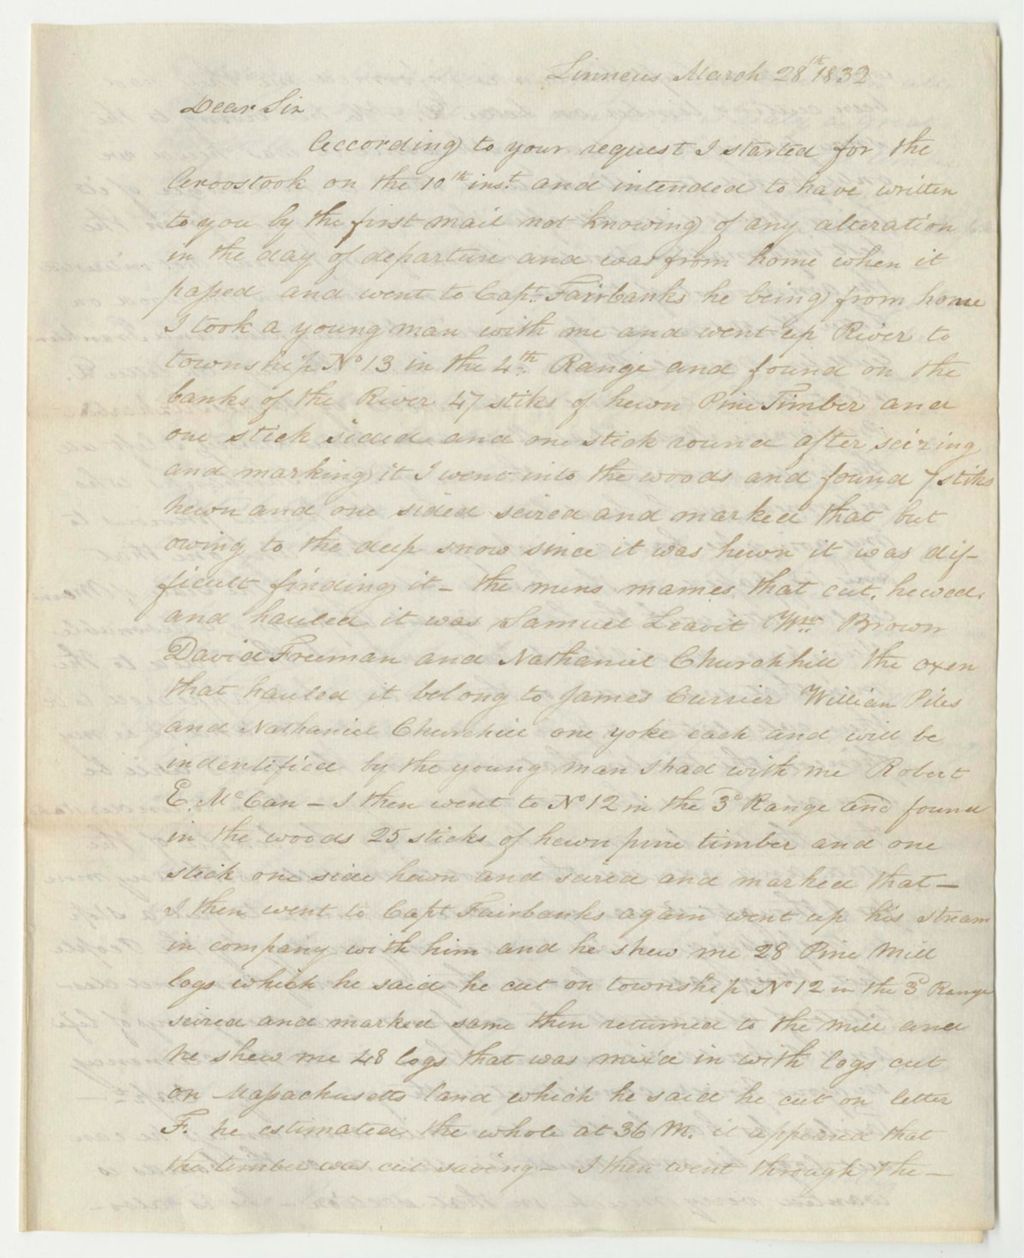 Linneus March 28th 1832
Dear Sir
According to your request I started for the
Aroostook on the 10th inst. and intended to have written
to you by the first mail not knowing of any alteration
in the day of departure and was from home when it
passed and went to Capt. Fairbanks he being from home
I took a young man with me and went up River to
township No 13 in the 4th Range and found on the
banks of the River 47 stiks of hewn Pine Timber and
one stick sided and one stick round after seizing
and marking it I went into the woods and found 7 stiks
hewn and one sided seized and marked that but
owing to the deep snow since it was hewn it was dif-
ficult finding it - the mens names that cut, hewed,
and hauled it was Samuel Leavit Wm Brown
David Freeman and Nathaniel Churchhill the oxen
that hauled it belong to James Currier William Piles
and Nathaniel Churchill one yoke each and will be
indentified by the young man I had with me Robert
E. McCan - I then went to No 12 in the 3d Range and found
in the woods 25 sticks of hewn pine timber and one
stick one side hewn and seized and marked that -
I then went to Capt Fairbanks again went up his stream
in company with him and he shew me 28 Pine Mill
logs which he said he cut on township No 12 in the 3d Range
seized and marked same then returned to the mill and
he shew me 48 logs that was mix'd in with logs cut
on Massachusetts land which he said he cut on letter
F. he estimated the whole at 36 M. it appeared that
the timber was cut saving - I then went through the -